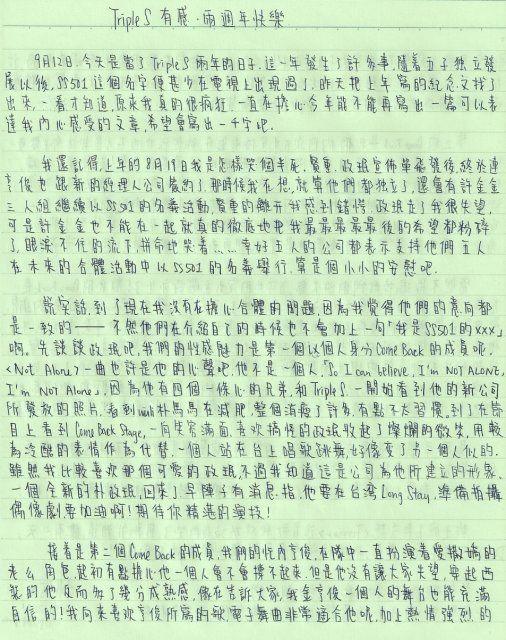 Triple S 有感·兩週年快樂
9月12日.今天是當了Triple S 兩年的日子.這一年發生了許多事.隨着五子獨立發
展以後,SS501這個名字便甚少在電視上出現過了.昨天把上年寫的紀念文找了
出來,一看才知道,原來我真的很瘋狂.一直在擔心今年能不能再寫出一篇可以表
達我內心感受的文章,希望會寫出一千字吧.
我還記得,上年的8月19日我是怎樣哭個半死.賢重.政珉宣佈單飛聲後,終於連
亨俊也跟新的經理人公司簽約了.那時候我在想,就算他們都獨立了,還會有許金金
三人組繼續以SS501的名義活動.賢重的離開我感到錯愕.政珉走了我很失望,
可是許金金也不能在一起就真的徹底地把我最最最最最後的希望都粉碎
了.眼淚不住的流下.拼命地哭着......幸好五人的公司都表示支持他們五人
在未來的合體活動中以SS501的名義舉行.算是個小小的安慰吧.
說實話,到了現在我沒有在擔心合體的問題,因為我覺得他們的意向都
是一致的——不然他們在介紹自己的時候也不會加上一句「我是SS501的xxx」
啊。先談談政珉吧,我們的性感魅力是第一個以個人身分Come Back的成員呢.
<Not Alone>一曲也許是他的心聲吧.他不是一個人,「So I can believe, I'm NOT ALONE,
I'm NOT Alone」,因為他有四個一條心的兄弟,和Triple S.一開始看到他的新公司
所發放的照片,看到 朴馬馬在減肥,整個消瘦了許多,有點不太習慣.到了在節
目上看到Come Back Stage,一向笑容滿面,喜歡搞怪的政珉收起了燦爛的微笑,用較
為冷酷的表情作為代替.一個人站在台上唱歌跳舞,好像變了另一個人似的.
雖然我比較喜歡那個可愛的政珉,不過我知道這是公司為他所建立的形象.
一個全新的朴政珉,回來了.早陣子有消息指,他要在台灣Long Stay,準備拍攝
偶像劇要加油啊!期待你精湛的演技!
接着是第二個Come Back的成員,我們的忙內亨俊,在隊中一直扮演着愛撒嬌的
老么角色.起初有點擔心他一個人會不會撐不起來.但是他沒有讓大家失望,穿起西
裝的他反而多了幾分成熟感.像在告訴大家,我金亨俊一個人的舞台也能充滿
自信的!我向來喜歡亨俊所寫的歌,電子舞曲非常適合他呢.加上熱情強烈的